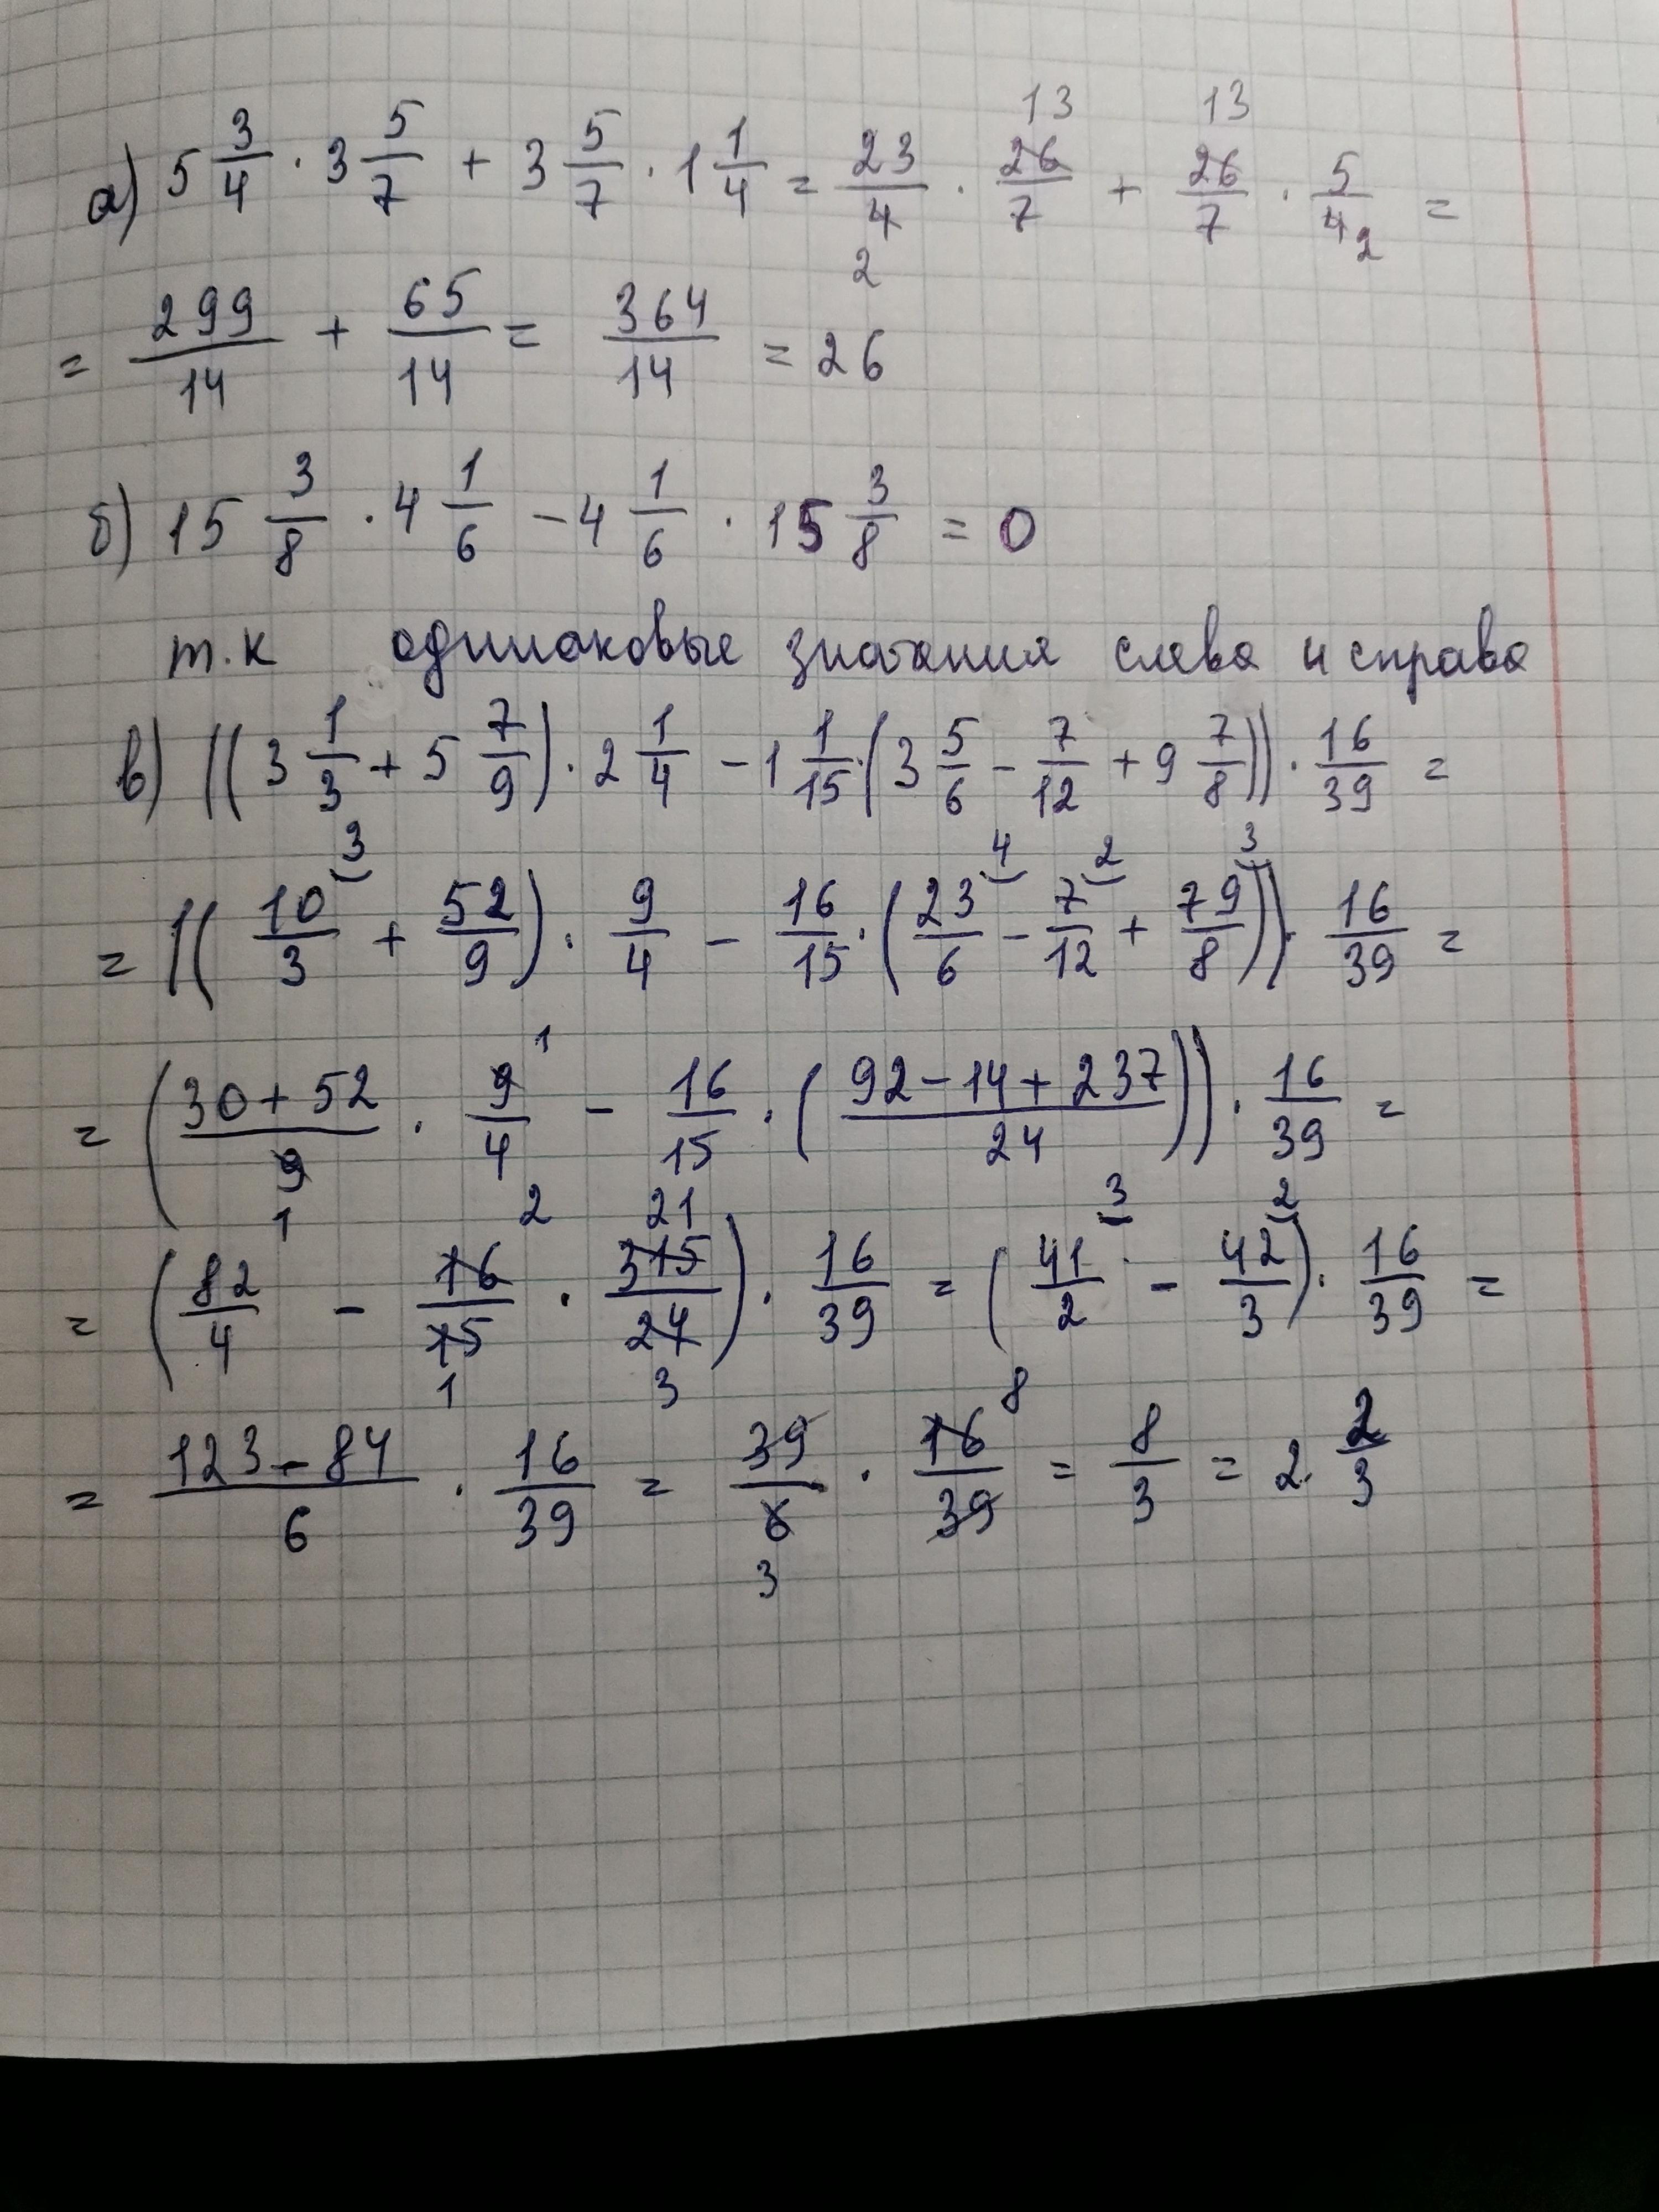 а) 5 3/4 · 3 5/7 + 3 5/7 · 1 1/4 = 23/4 2 · 26/7 13 + 26/7 13 · 5/4 2 =
= 299/14 + 65/14 = 364/14 = 26
б) 15 3/8 · 4 1/6 − 4 1/6 · 15 3/8 = 0
т.к одинаковые значения слева и справа
в) ((3 1/3 + 5 7/9) · 2 1/4 − 1 1/15 · (3 5/6 − 7/12 + 9 7/8)) · 16/39 =
= ((10/3 3 + 52/9) · 9/4 − 16/15 · (23/6 4 − 7/12 2 + 79/8 3)) · 16/39 =
= ((30 + 52)/9 1 · 9/4 1 − 16/15 · ((92 − 14 + 237)/24)) · 16/39 =
= (82/4 − 16/15 2 1 · 315/24 21 3) · 16/39 = (41/2 3 − 42/3 2) · 16/39 =
= (123 − 84)/6 · 16/39 = 39/6 3 · 16/39 8 = 8/3 = 2 2/3